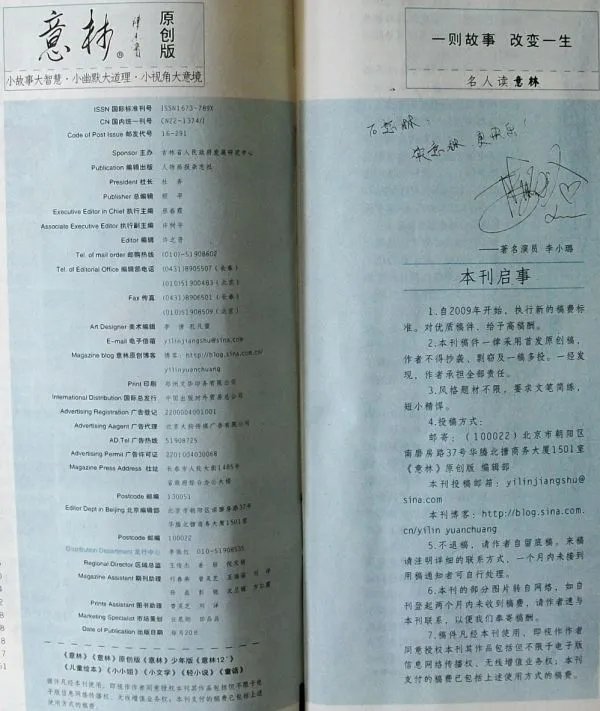 意林
原创版
小故事大智慧·小幽默大道理·小视角大意境
ISSN 国际标准刊号 ISSN1673-789X
CN 国内统一刊号 CN22-1374/I
Code of Post Issue 邮发代号 16-291
Sponsor 主办 吉林省人民政府发展研究中心
Publication 编辑出版 人物画报杂志社
President 社长 杜务
Publisher 总编辑 顾平
Executive Editor in Chief 执行主编 蔡春霞
Associate Executive Editor 执行副主编
Editor 编辑 许之善
Tel. of mail order 邮购热线 (010)-51908602
Tel. of Editorial Office 编辑部电话 (0431)8905507(长春)
(010)51900483(北京)
Fax 传真 (0431)8906501(长春)
(010)51908509(北京)
Art Designer 美术编辑
E-mail 电子信箱 yilinjiangshu@sina.com
Magazine blog 意林原创博客 博客:http://blog.sina.com.cn/
yilinyuanchuang
Print 印刷 郑州文华印务有限公司
International Distribution 国际总发行 中国出版对外贸易总公司
Advertising Registration 广告登记 2200004001001
Advertising Aagent 广告代理 北京大腕传媒广告有限公司
AD.Tel 广告热线 51908725
Advertising Permit 广告许可证 2201004030068
Magazine Press Address 社址 长春市人民大街1485号
省政府综合办公大楼
Postcode 邮编 130051
Editor Dept in Beijing 北京编辑部 北京市朝阳区南磨房路37号
华腾北搪商务大厦1501室
Postcode 邮编 100022
Distribution Department 发行中心 010-51908535
Regional Director 区域总监
Magazine Assistant 期刊助理
Prints Assistant 图书助理
Marketing Specialist 市场策划
Date of Publication 出版日期 每月20日
《意林》《意林》原创版《意林》少年版《意林12+》
《儿童绘本》《小小姐》《小文学》《轻小说》《童话》
稿件凡经本刊使用,即视作作者同意授权本刊其作品包括但不限于电
子版信息网络传播权、无线增值业务权;本刊支付的稿费已包括上述
使用方式的稿费。
一则故事 改变一生
名人读意林
——著名演员 李小璐
本刊启事
1.自2009年开始,执行新的稿费标
准。对优质稿件,给予高稿酬。
2.本刊稿件一律采用首发原创稿,
作者不得抄袭、剽窃及一稿多投。一经发
现,作者承担全部责任。
3.风格题材不限,要求文笔简练,
短小精悍。
4.投稿方式:
邮寄:(100022)北京市朝阳区
南磨房路37号华腾北搪商务大厦1501室
《意林》原创版 编辑部
本刊投稿邮箱:yilinjiangshu@
sina.com
本刊博客:http://blog.sina.com.
cn/yilin yuanchuang
5.不退稿,请作者自留底稿。来稿
请注明详细的联系方式,一个月内未接到
用稿通知者可自行处理。
6.本刊的部分图片转自网络,如自
刊登起两个月内未收到稿费,请作者速与
本刊联系,以便我们奉寄稿酬。
7.稿件凡经本刊使用,即视作作者
同意授权本刊其作品包括但不限于电子版
信息网络传播权、无线增值业务权;本刊
支付的稿费已包括上述使用方式的稿费。